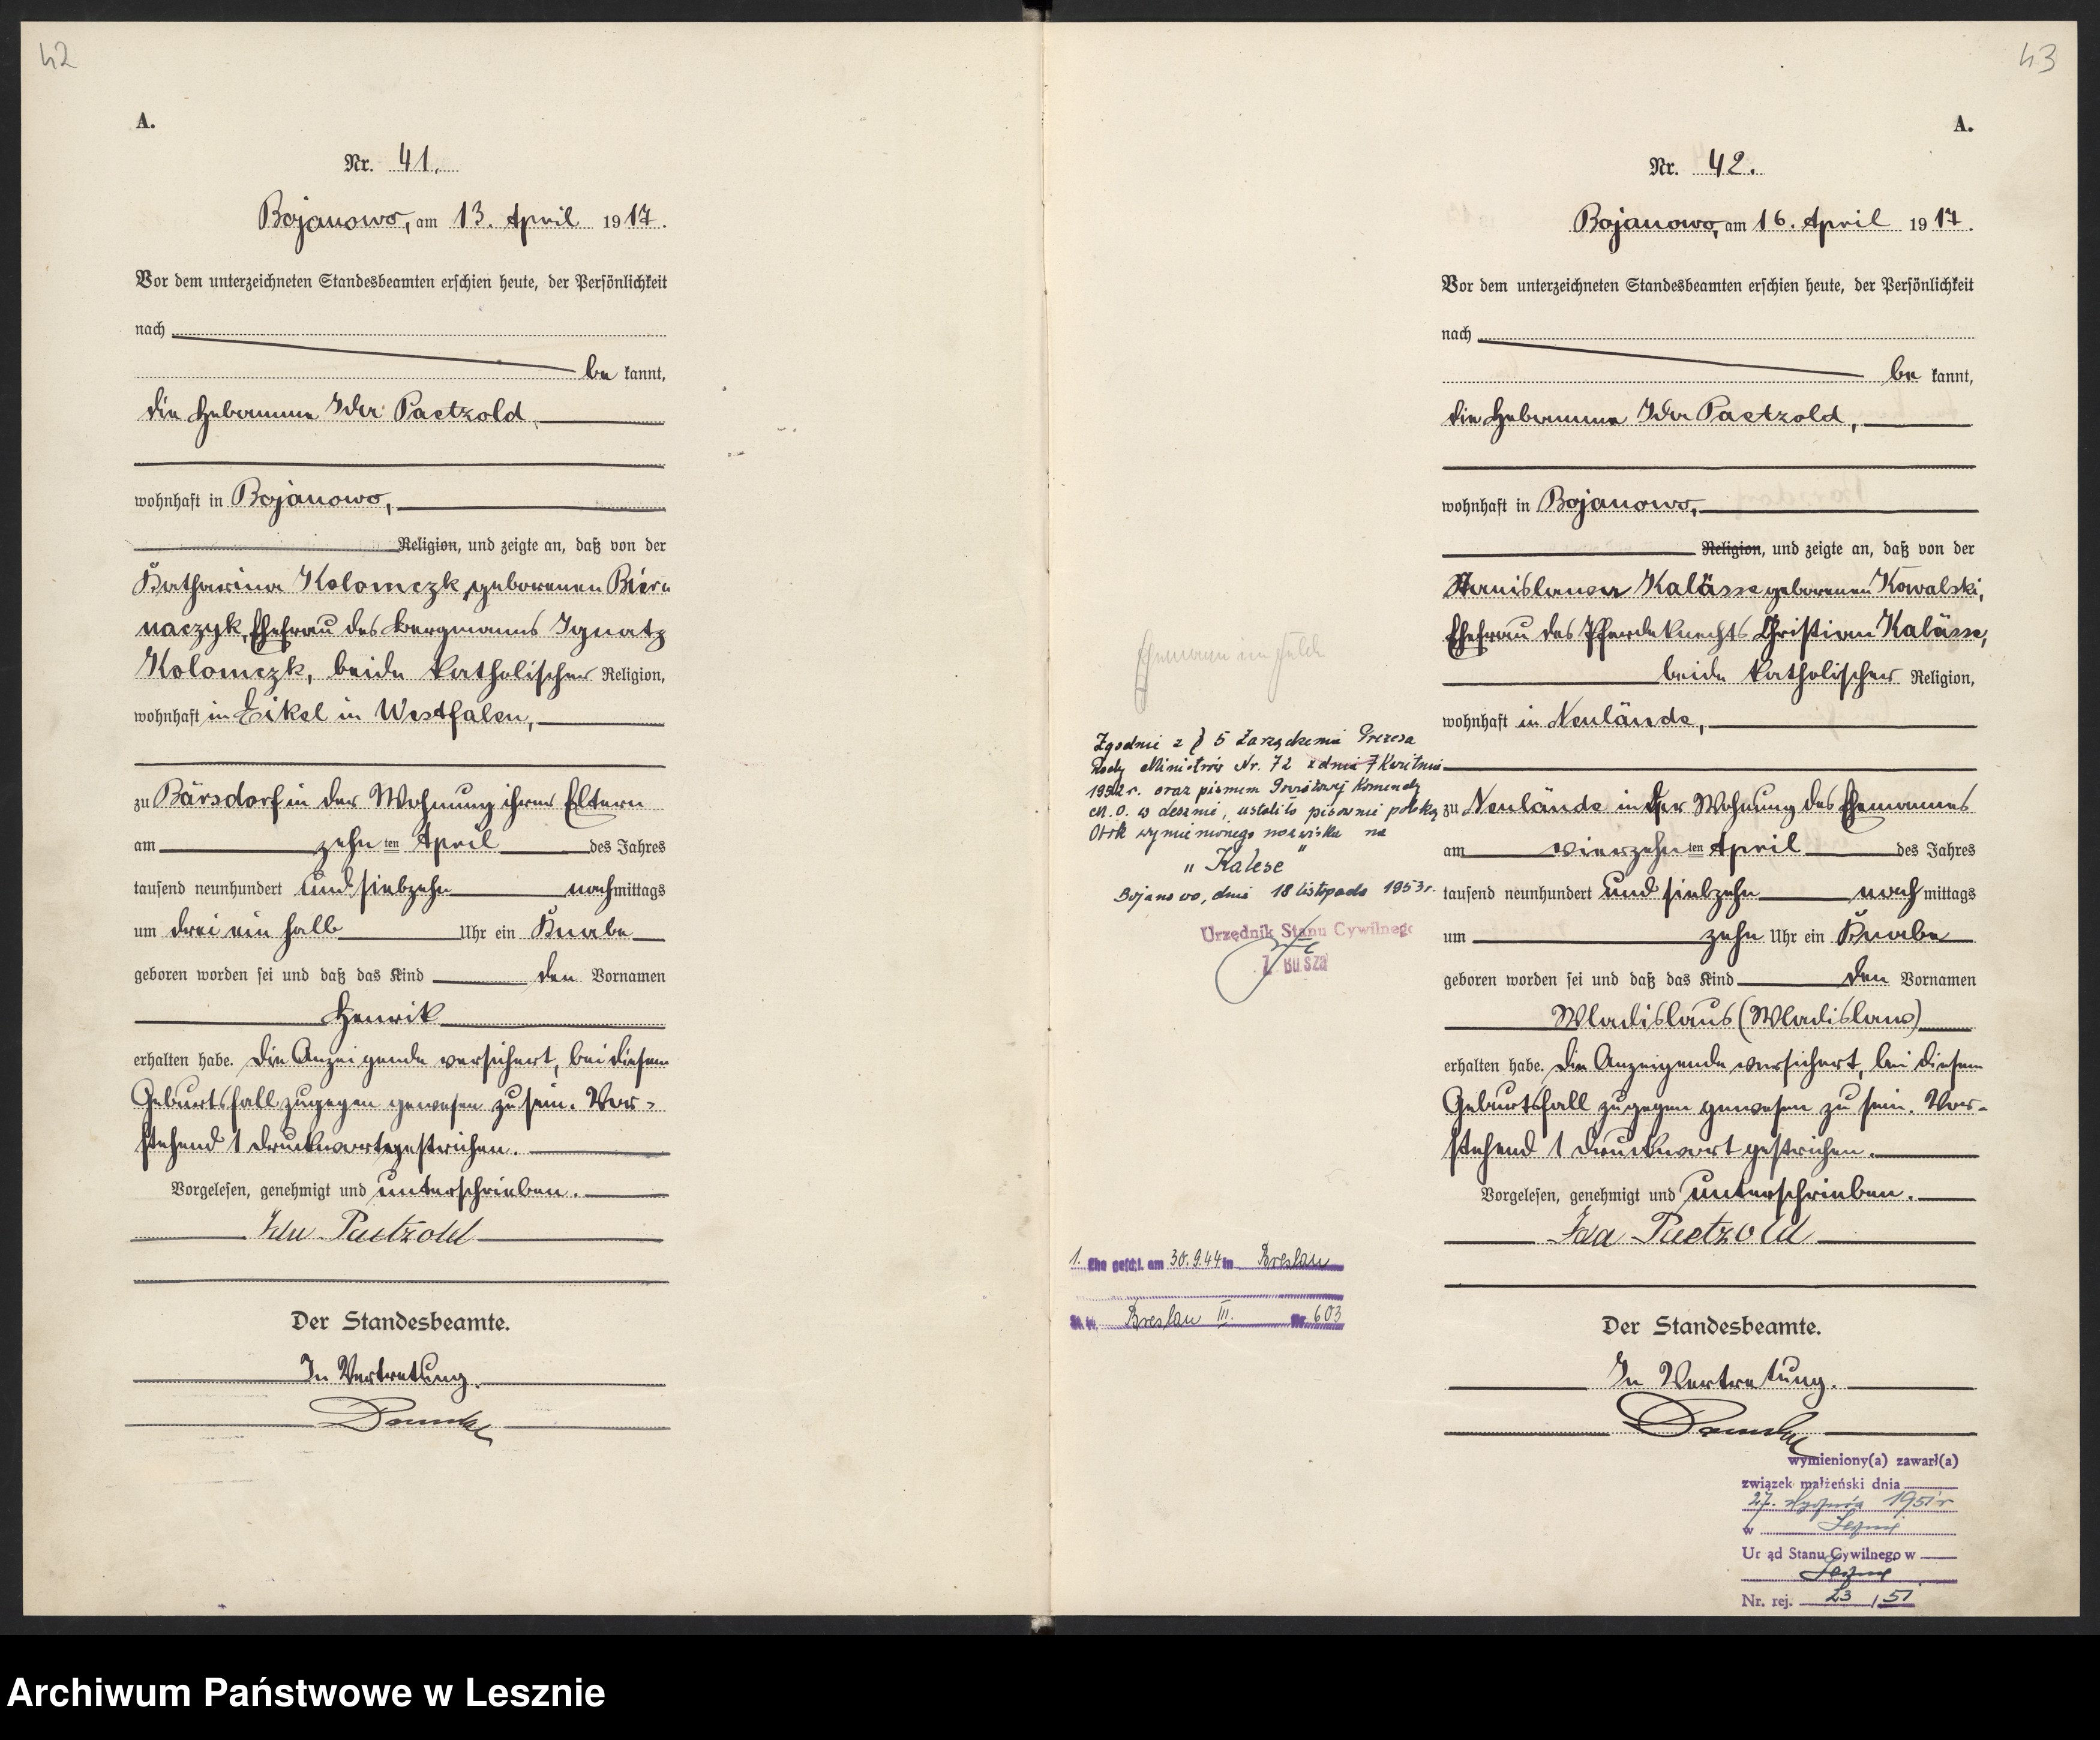 42
A.
Nr. 41.
Bojanowo, am 13. April 1917.
Vor dem unterzeichneten Standesbeamten erschien heute, der Persönlichkeit
nach
be kannt,
die Hebamme Ida Paetzold,
wohnhaft in Bojanowo,
Religion, und zeigte an, daß von der
Katharina Kolomczk, geborenen Bier-
naczyk, Ehefrau des Bergmanns Ignatz
Kolomczk, beide katholischer Religion,
wohnhaft in Eikel in Westfalen,
zu Bärsdorf in der Wohnung ihrer Eltern
am zehn ten April des Jahres
tausend neunhundert und siebzehn nachmittags
um drei ein halb Uhr ein Knabe
geboren worden sei und daß das Kind den Vornamen
Henrik
erhalten habe. Die Anzeigende versichert, bei diesem
Geburtsfall zugegen gewesen zu sein. Vor-
stehend 1 Druckwort gestrichen.
Vorgelesen, genehmigt und unterschrieben.
Ida Paetzold
Der Standesbeamte.
In Vertretung.
43
A.
Nr. 42.
Bojanowo, am 16. April 1917.
Vor dem unterzeichneten Standesbeamten erschien heute, der Persönlichkeit
nach
be kannt,
die Hebamme Ida Paetzold,
wohnhaft in Bojanowo,
Religion, und zeigte an, daß von der
Stanislawa Kalässe geborenen Kowalski,
Ehefrau des Pferdeknechts Christian Kalässe,
beide katholischer Religion,
wohnhaft in Neulände,
zu Neulände in der Wohnung des Ehemannes
am vierzehn ten April des Jahres
tausend neunhundert und siebzehn nach mittags
um zehn Uhr ein Knabe
geboren worden sei und daß das Kind den Vornamen
Wladislaus (Wladislaus)
erhalten habe. Die Anzeigende versichert, bei diesem
Geburtsfall zugegen gewesen zu sein. Vor-
stehend 1 Druckwort gestrichen.
Vorgelesen, genehmigt und unterschrieben.
Ida Paetzold
Der Standesbeamte.
In Vertretung.
Ehemann im Felde
Zgodnie z § 5 Zarządzenia Prezesa
Rady Ministrów Nr. 72 z dnia 7 Kwietnia
1952 r. oraz pismem Powiatowej Komendy
M.O. w Lesznie, ustalito pisownie polską
Obok wymienionego nazwiska na
"Kalese"
Bojanowo, dnia 18 listopada 1953 r.
Urzędnik Stanu Cywilnego
Z. Busza
1. Ehe geschl. am 30.9.44 in Breslau
St. A. Breslau III. Nr. 603
wymieniony(a) zawarł(a)
związek małżeński dnia
27. 1951 r
w Lesznie
Urząd Stanu Cywilnego w
Lesznie
Nr. rej. 23 / 51
Archiwum Państwowe w Lesznie